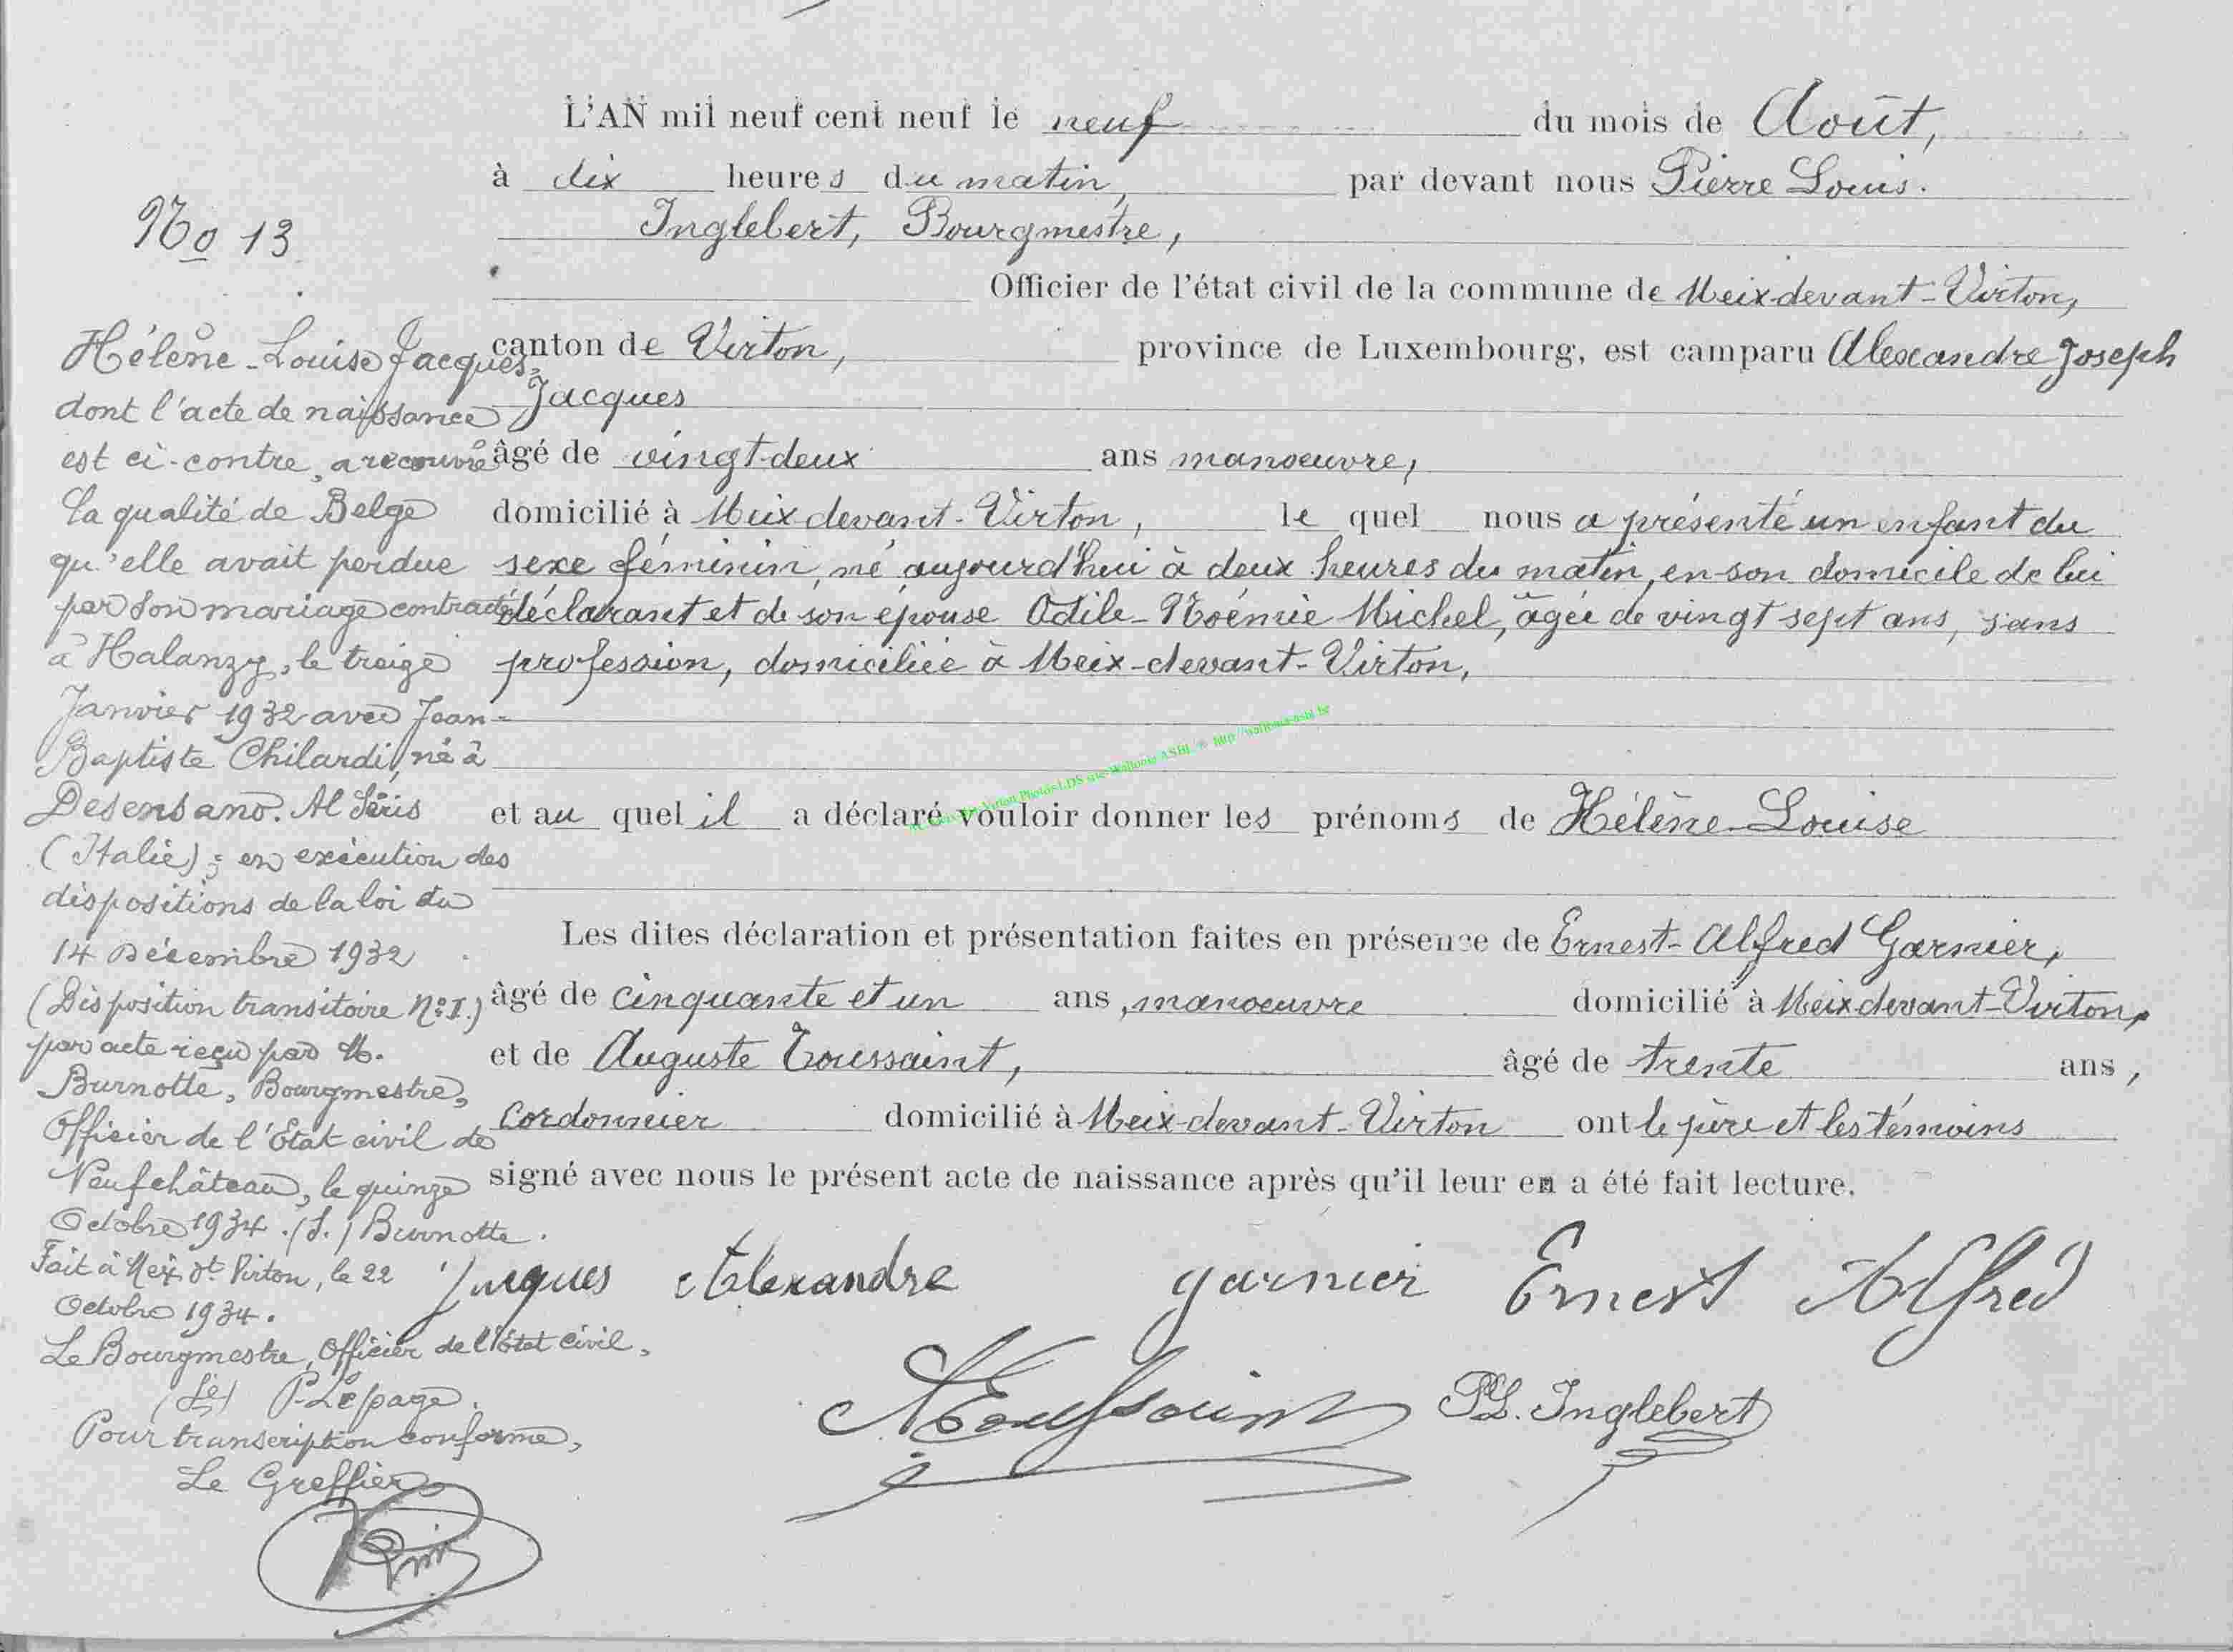 L'AN mil neuf cent neuf le neuf du mois de Août,
à dix heures du matin, par devant nous Pierre Louis.
Inglebert, Bourgmestre,
Officier de l'état civil de la commune de Meix-devant-Virton,
canton de Virton, province de Luxembourg, est camparu Alexandre Joseph
Jacques
âgé de vingt-deux ans manoeuvre,
domicilié à Meix-devant-Virton, le quel nous a présenté un enfant du
sexe féminin, né aujourd'hui à deux heures du matin, en son domicile de lui
déclarant et de son épouse Odile-Noémie Michel, âgée de vingt sept ans, sans
profession, domiciliée à Meix-devant-Virton,
et au quel il a déclaré vouloir donner les prénoms de Hélène-Louise
Les dites déclaration et présentation faites en présence de Ernest-Alfred Garnier,
âgé de cinquante et un ans, manoeuvre domicilié à Meix devant-Virton,
et de Auguste Toussaint, âgé de trente ans,
Cordonnier domicilié à Meix-devant-Virton ont le père et les témoins
signé avec nous le présent acte de naissance après qu'il leur en a été fait lecture.
Jacques Alexandre garnier Ernest Alfred
AToussaint PL. Inglebert
No 13
Hélène-Louise Jacques,
dont l'acte de naissance
est ci-contre, a recouvré
la qualité de Belge
qu'elle avait perdue
par son mariage contracté
à Halanzy, le treize
Janvier 1932 avec Jean-
Baptiste Chilardi, né à
Desensano. Al Séris
(Italie); en exécution des
dispositions de la loi du
14 Décembre 1932
(Disposition transitoire No I.)
par acte reçu par M.
Burnotte, Bourgmestre,
Officier de l'Etat civil de
Neufchâteau, le quinze
Octobre 1934. (S.) Burnotte.
Fait à Meix dt Virton, le 22
Octobre 1934.
Le Bourgmestre, Officier de l'état civil,
(Sé) P. Lepage.
Pour transcription conforme,
Le Greffier
Photos LDS Wallonia ASBL © http://wallonia-asbl.be